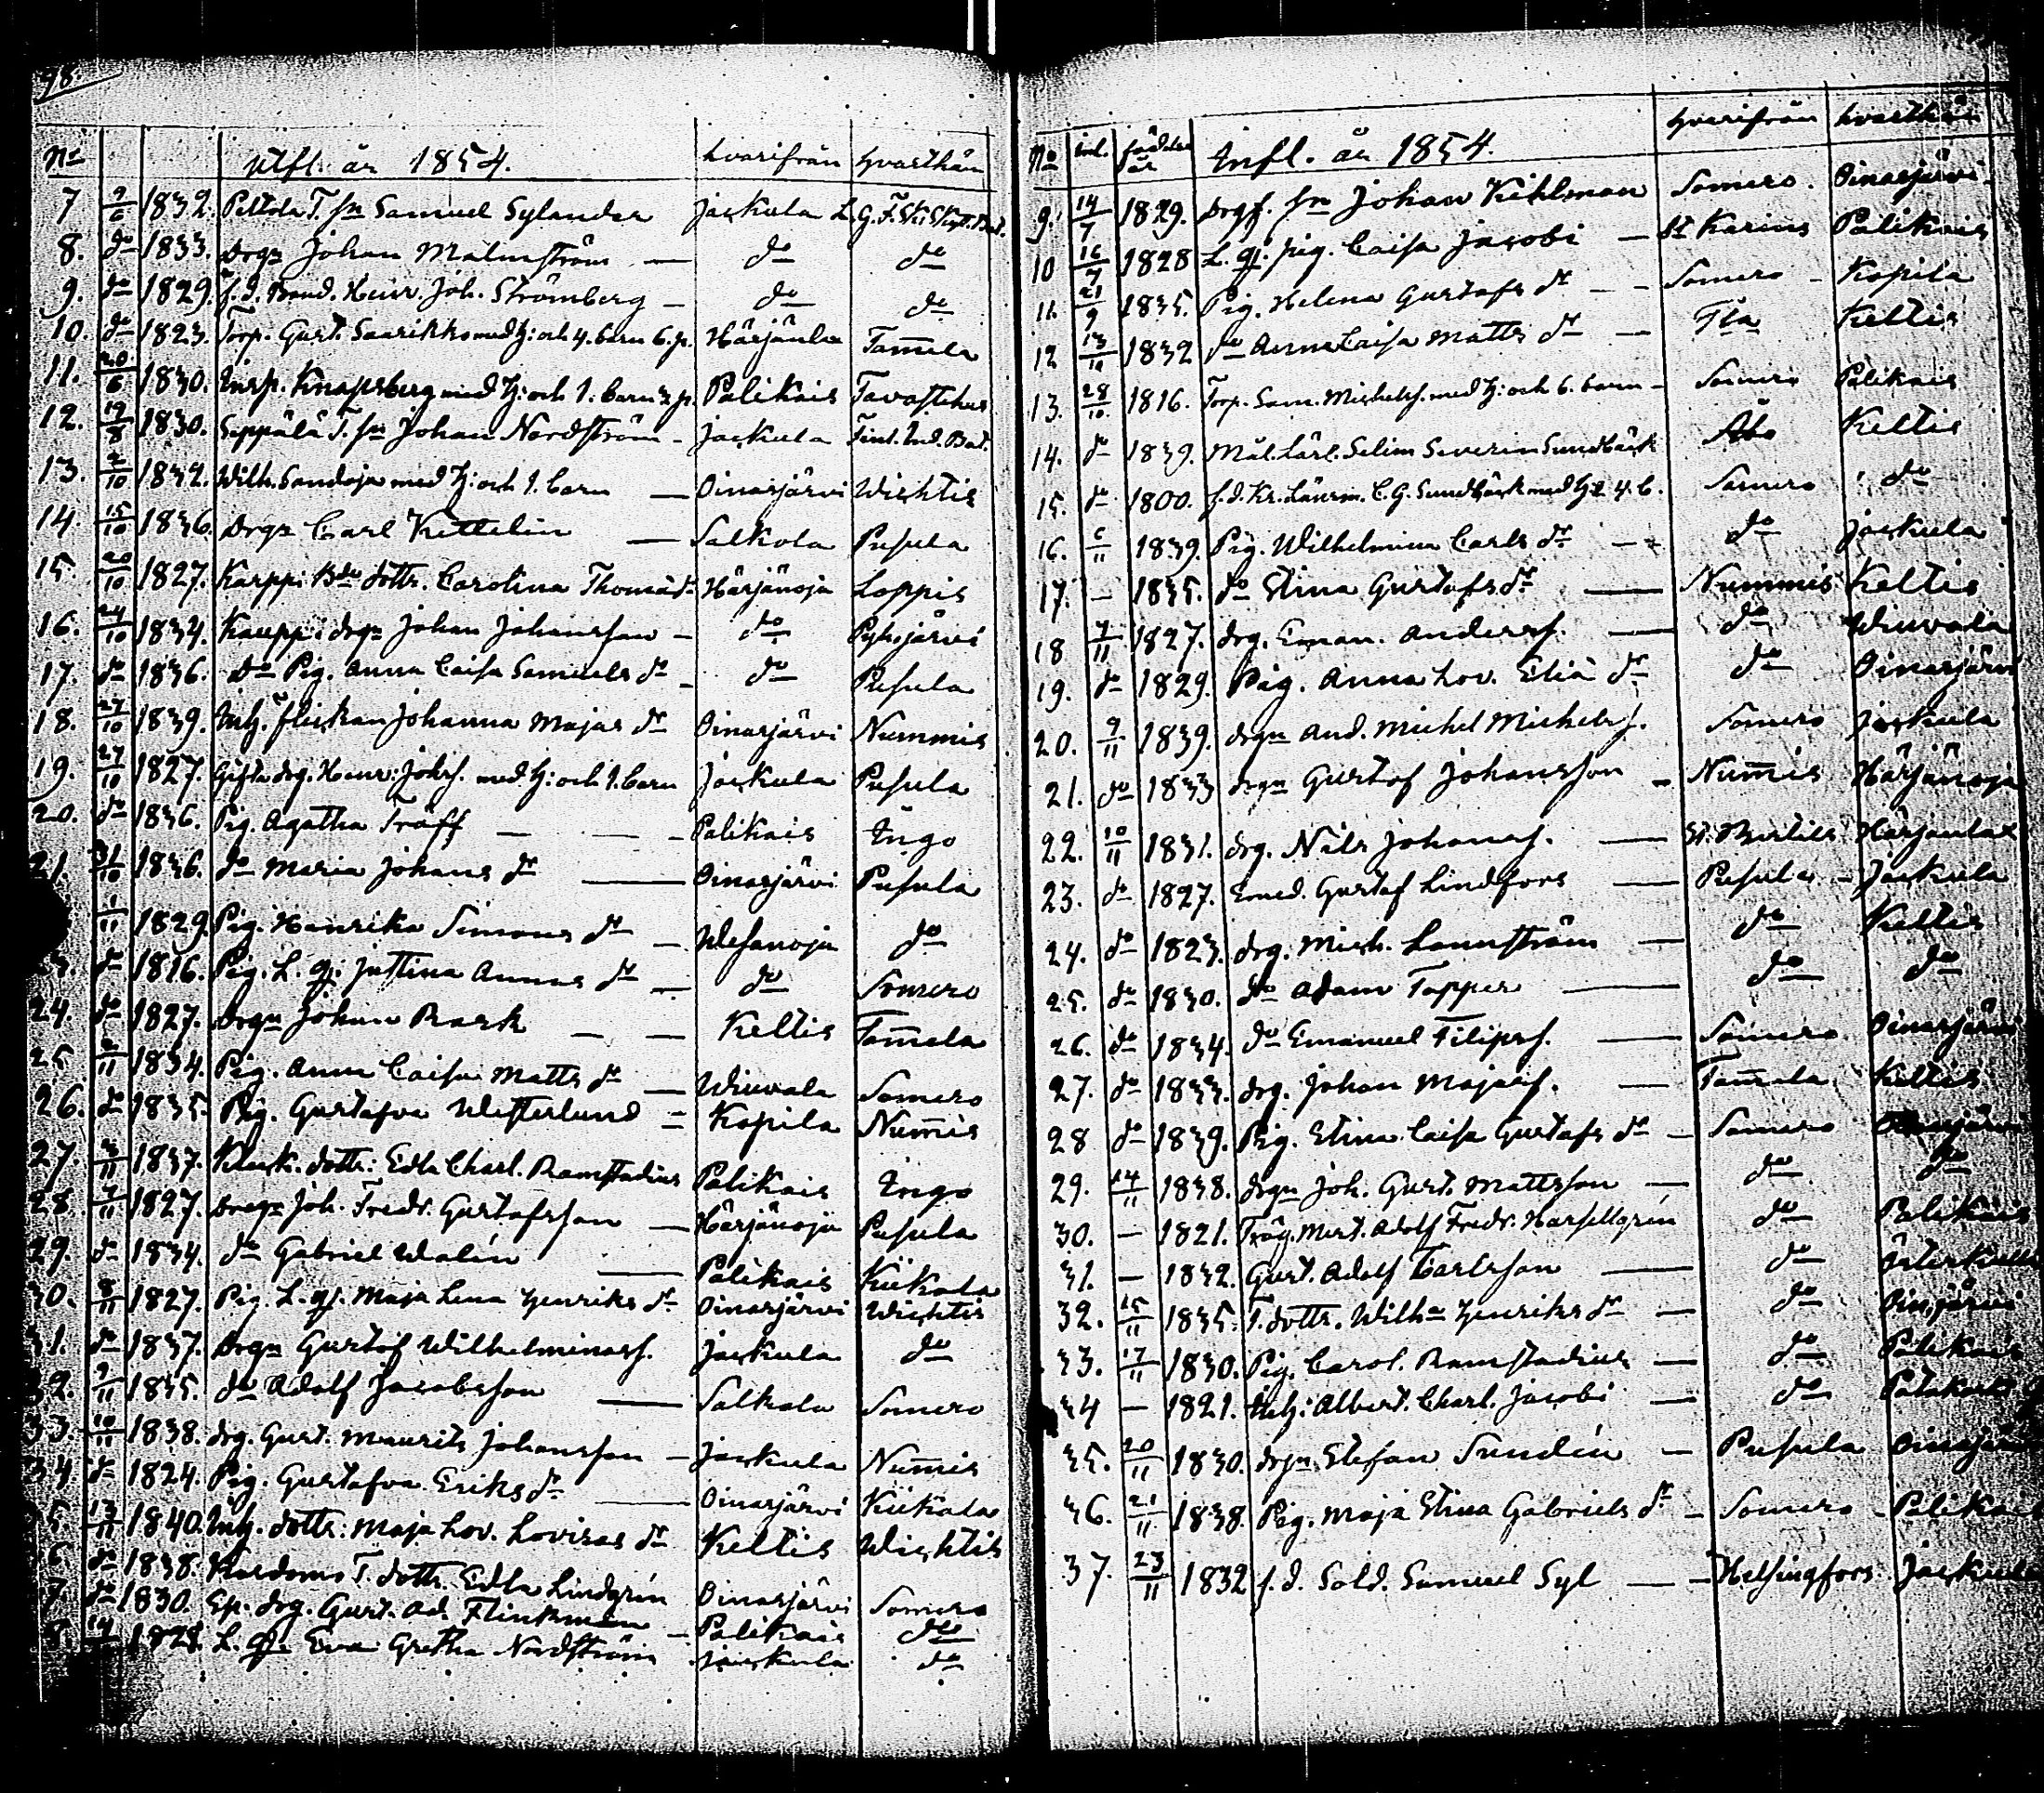 98.
No Utfl. år 1854. hvarifrån hvarthän
7 9/6 1832. Peltola T. sn Samuel Sylander Jackula L. G. F. Sk: Skytt. Bat.
8. do 1833. Drgn Johan Malmström — do do
9. do 1829. f. d. Bond. Henr. Joh. Strömberg — do do
10. do 1823. Torp. Gust. Saarikko med h: och 4. barn 6. p. Härjänlax Tam̄ela
11. 20/6 1830. Insp. Knapsberg med h: och 1. barn 3 p. Palikais Tavastehus
12. 19/8 1830. Seppälä T. sn Johan Nordström — Jackula Finl. Ind. Bat.
13. 2/10 1832. Wilh. Sandoja med h: och 1. barn — Oinasjärvi Wichtis
14. 15/10 1836. Drgn Carl Kettelin — Salkola Pusula
15. 20/10 1827. Karppi Bde dottr. Carolina Thomä dr Härjänoja Loppis
16. 24/10 1834. Kauppi drgn Johan Johansson — do Pyhäjärvi
17. do 1836. do Pig. Anna Caisa Samuels dr — do Pusula
18. 27/10 1839. Inh. flickan Johanna Majas dr Oinasjärvi Nummis
19. 27/10 1827. Gifta drg. Henr. Johs. med h: och 1. barn Jackula Pusula
20. do 1836. Pig. Agatha Träff — — — Palikais Ingo
21. 31/10 1836. do Maria Johans dr — Oinasjärvi Pusula
1/11 1829. Pig. Henrika Simons dr — Wesanoja do
3. do 1816. Pig. L. qp: Justina Annas dr — do Somero
24. do 1827. Drgn Johan Rask — — Keltis Tam̄ela
25 2/11 1834. Pig. Anna Caisa Matts dr — Wiuvala Somero
26. do 1835. Pig. Gustafva Westerlund = Kopila Num̄is
27. 3/11 1837. Klock. dottr: Edla Charl. Ramstadius Palikais Ingo
28. 7/11 1827. Drgn Joh. Fredr. Gustafsson — Härjänoja Pusula
29. do 1834. do Gabriel Walén — Palikais Kiikala
30. 8/11 1827. Pig. L. qp. Maja Lena Henriks dr Oinasjärvi Wichtis
31. do 1837. Drgn Gustaf Wilhelminas. Jackula do
32. 9/11 1835. do Adolf Jacobsson — Salkola Somero
33. 10/11 1838. drg. Gust. Maurits Johansson — Jackula Num̄is
34. do 1824. Pig. Gustafva Eriks dr — Oinasjärvi Kiikala
5. 13/11 1840. Inh. dottr: Maja Lov. Lovisas dr Keltis Wichtis
6. do 1838. T. dottr. Edla Lindgrén Oinasjärvi Somero
7. do 1830. Sp. drg. Gust. Ad. Flinkman — Palikais do
8. 1828. L. qp. Eva Gretha Nordström Jackula do
No Inl. födelse år Infl. år 1854. hvarifrån hvarthän
9. 14/7 1829. Drgf. sn Johan Kihlman Somero. Oinasjärvi.
10 16/7 1828 L. qp. pig. Caisa Jacobi — St Karins Palikais
11. 21/9 1835. Pig. Helena Gustafs dr — — Somero — Kopila
12 13/10 1832 do Anna Caisa Matts dr — Keltis
13. 28/10. 1816. Torp. Sam. Michels. med h: och 6. barn — Somero Palikais
14. do 1839. Mål. Lärl. Selim Severin Sundbäck Åbo Keltis
15. do 1800. f. d. Kr. Länsm. C. G. Sundbäck med h: 4. b. Somero do
16. 6/11 1839. Pig. Wilhelmina Carls dr — do Jackula
17. — 1835. do Stina Gustafs dr — Nummis Keltis
18 7/11 1827. drg. Eman. Anders. — do Wiuvala
19. do 1829. Pig. Anna Lov. Eliä dr do Oinasjärvi
20. 9/11 1839. drgn And. Michel Michels. Somero Jackula
21. do 1833 drgn Gustaf Johansson — Num̄is Härjänoja
22. 10/11 1831. drg. Nils Johans. — St. Bertils Härjänlax
23. do 1827. Smed. Gustaf Lindfors — Pusula — Jackula
24. do 1823. drg. Mich. Lönnström — do Keltis
25. do 1830. do Adam Topper — do do
26. do 1834. do Emanuel Filips. — Somero. Oinasjärvi
27. do 1833. drg. Johan Majas. — Tam̄ela Keltis
28 do 1839. Pig. Stina Caisa Gustafs dr — Somero Oinasjärvi
29. 14/11 1838. drgn Joh. Gust. Mattsson — do do
30. — 1821. Träg. Mest. Adolf Fredr. Harsellgrén do Palikais
31. — 1832. Gust. Adolf Carlsson — do
32. 15/11 1835. T. dottr. Wilhna Henriks dr — do Oinasjärvi
33. 17/11 1830. Pig. Carol. Ramstadius — do Palikais
34 — 1821. Inh: Albert. Charl. Jacobi — do
35. 20/11 1830. drgn Stefan Sundén — Pusula Oinasjärvi
36. 21/11 1838. Pig. Maja Stina Gabriels dr — Somero — Palikais
37. 23/11 1832 f. d. Sold. Samuel Syl — — Helsingfors. Jackula